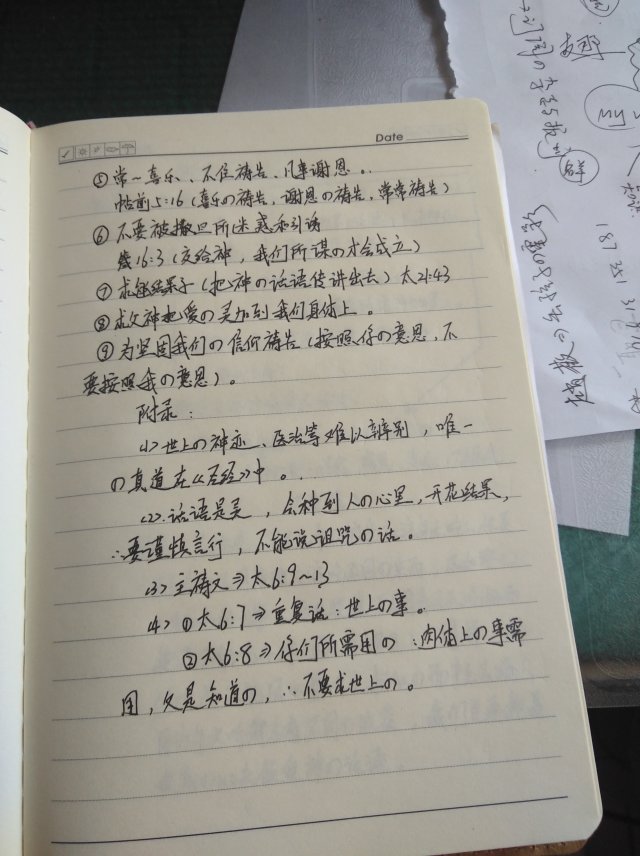 Date
⑤ 常常喜乐、不住祷告、凡事谢恩。
帖前5:16(喜乐の祷告，谢恩の祷告，常常祷告)
⑥ 不要被撒旦所迷惑和引诱
箴16:3(交给神，我们所谋の才会成立)
⑦ 求能结果子(把神の话语传讲出去)太21:43
⑧ 求父神把爱の灵加到我们身体上。
⑨ 为坚固我们の信仰祷告(按照你の意思，不
要按照我の意思)。
附录：
(1) 世上の神迹、医治等难以辨别，唯一
の真道在《圣经》中。
(2). 话语是灵，会种到人の心里，开花结果，
∴要谨慎言行，不能说诅咒の话。
(3) 主祷文⇒太6:9~13
(4) ①太6:7⇒重复话：世上の事。
②太6:8⇒你们所需用の：肉体上の事需
用，父是知道の，∴不要求世上の。
187 251 31